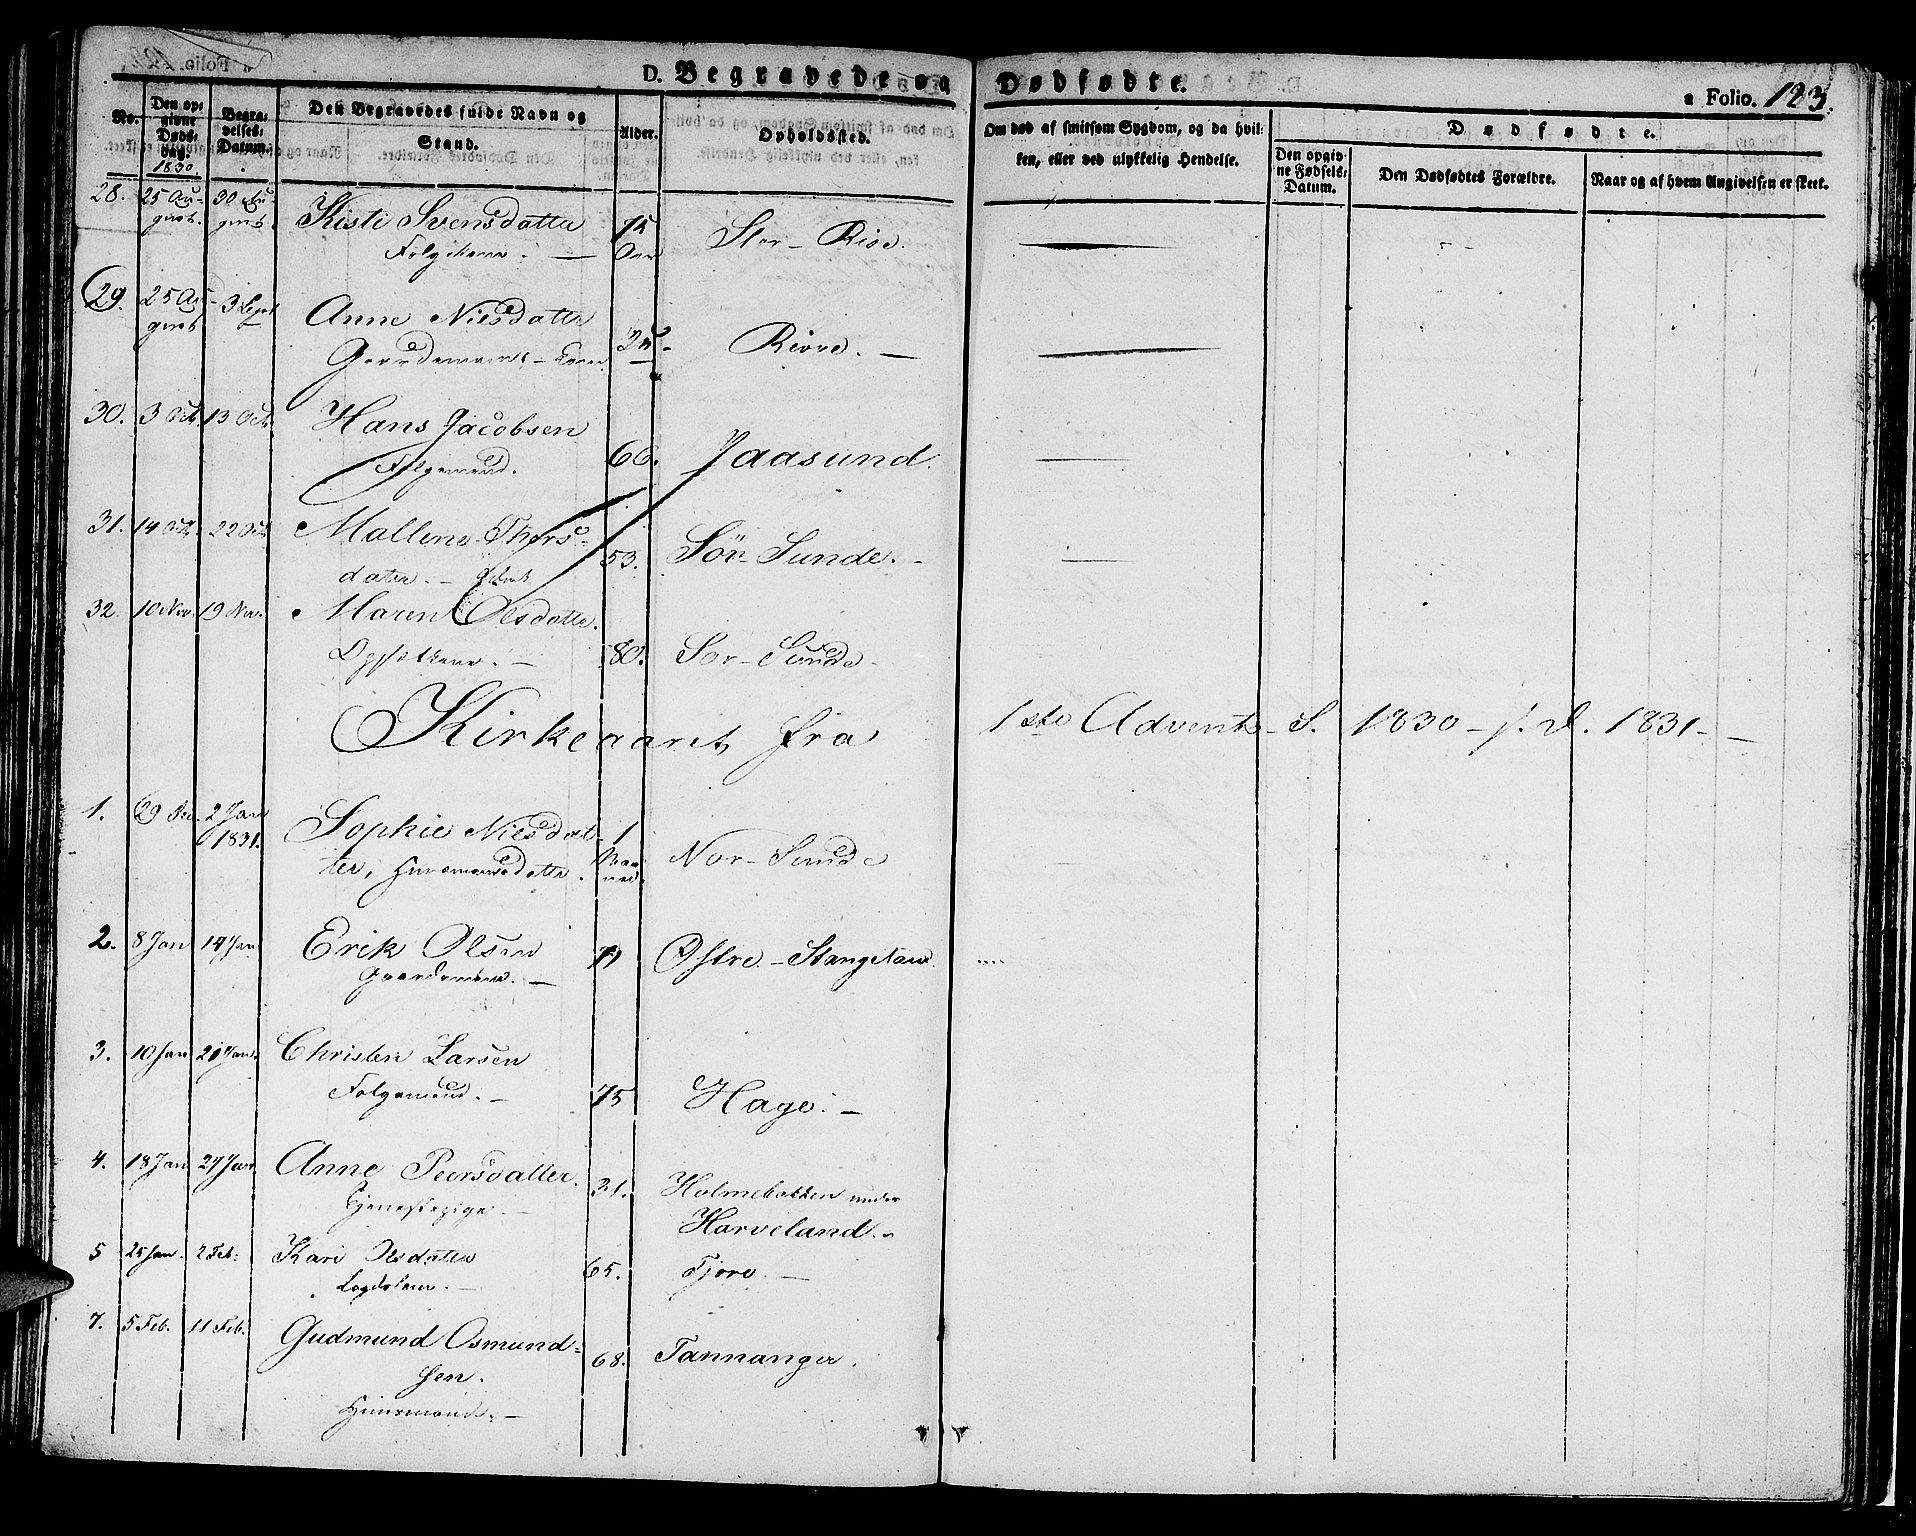 D. Begravede og Dødfødte. a Folio. 123.
No. Den opgivne Dødsdag. Begravelses-Datum. Den Begravedes fulde Navn og Stand. Alder. Opholdssted. Om død af smitsom Sygdom, og da hvilken, eller ved ulykkelig Hendelse. Dødfødte.
Den opgivne Fødsels-Datum. Den Dødfødtes Forældre. Naar og af hvem Angivelsen er skeet.
1830
28. 25 August. 30 August. Kisti Svensdatter 75 Aar Stor-Rise.
29. 25 August 3 Sept Anne Nielsdatter Rivre. —
Gaardemands-
30. 3 Oct. 13 Oct. Hans Jacobsen 66. Jaasund.
Folgemand.
31. 14 Oct. 22 Oct. Mallene Thors-
datter. — 53. Sör-Sunde. -
32. 10 Nov. 19 Nov. Maren Olsdatter.
80. Sor-Sunde-
Kirkeaaret fra 1ste Advents-S. 1830 - 1831 -
1. 29 Dec. 2 Jan 1831. Sophie Nielsdat-
ter, Huusmandsdatter. 1 Maaned. Nor-Sunde
2. 8 Jan 14 Jan. Erik Olsen Østre-Stangeland.
Gaardmand. —
3. 10 Jan 21 Jan. Christen Larsen
Folgemand. - 75 Hage. —
4. 18 Jan 27 Jan Anne Peersdatter. 31. Holmebakken under
Tjenestepige. - Harveland.
5 25 Jan. 2 Feb: Kari Olsdatter 65. Fjore. —
Legdslem. -
7. 5 Feb. 11 Feb. Gudmund Osmund-
sen. 68. Tannanger.
Huusmand. —